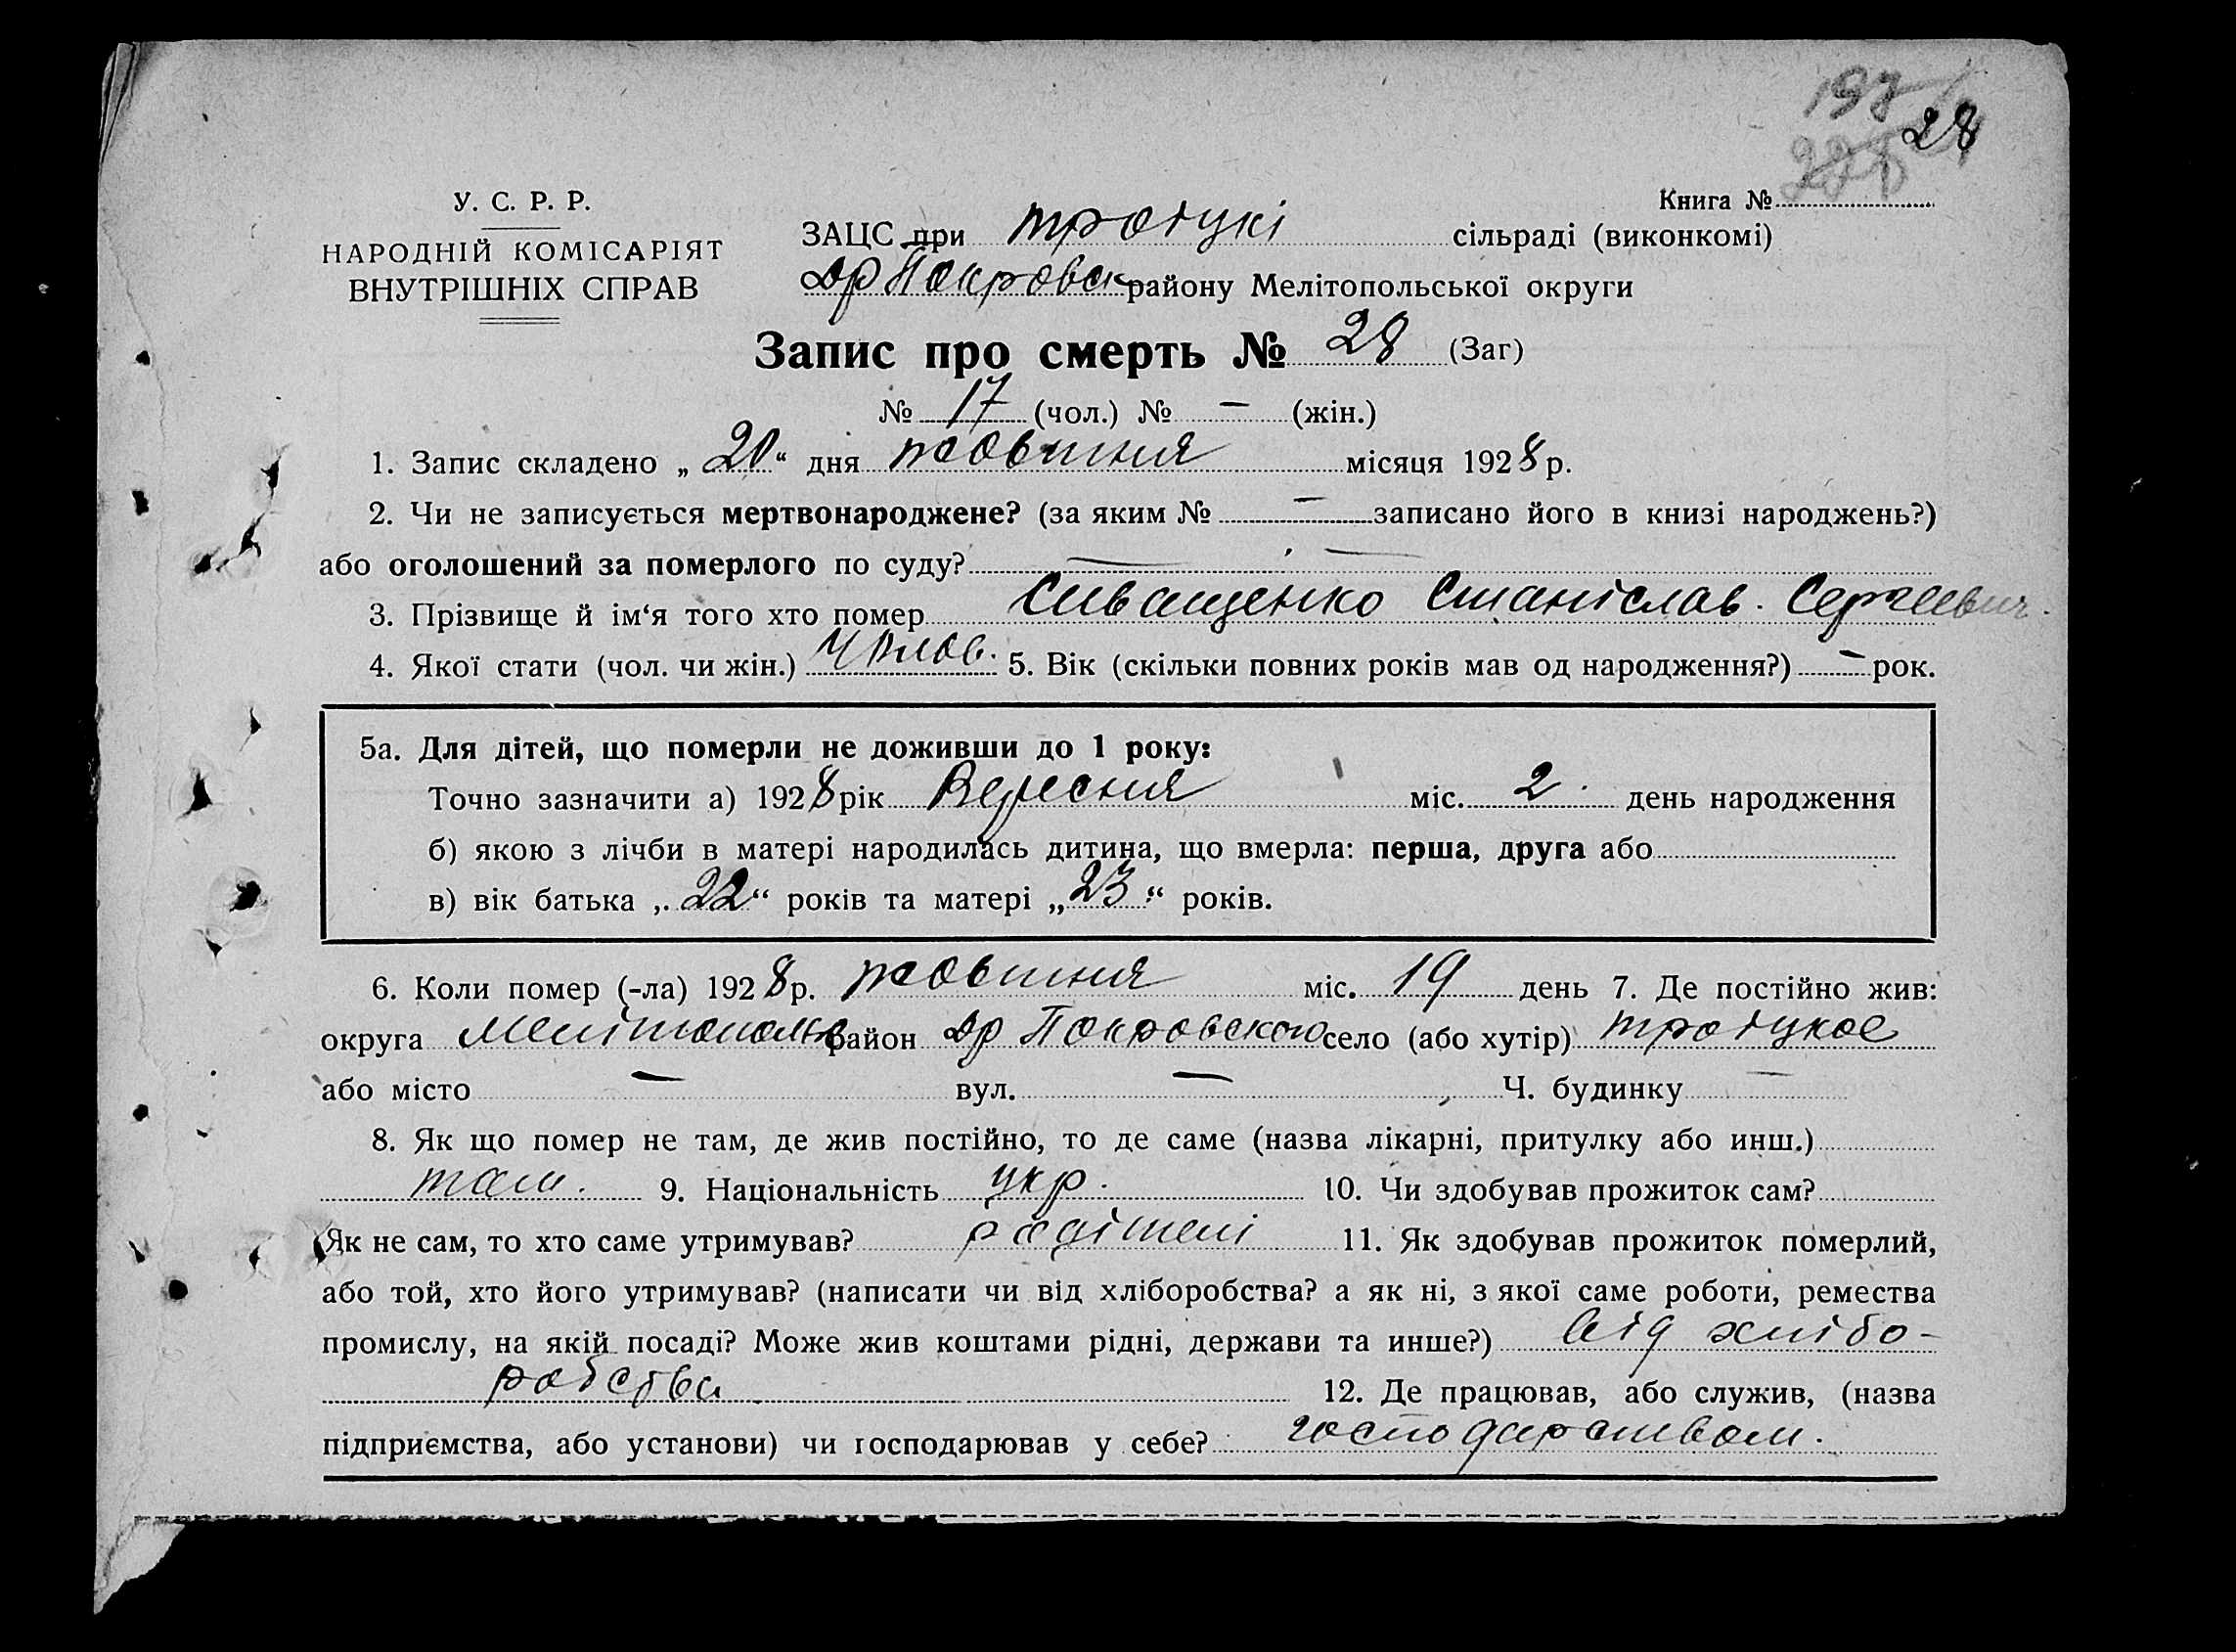 197
28
У. С. Р. Р.
Книга №
НАРОДНІЙ КОМІСАРІЯТ
ВНУТРІШНІХ СПРАВ
ЗАЦС при сільраді (виконкомі)
Др Покровск району Мелітопольської округи
Запис про смерть № 28 (Заг)
№ 17 (чол.) № — (жін.)
1. Запис складено „ 20 “ дня жовтня місяця 1928 р.
2. Чи не записується мертвонароджене? (за яким № — записано його в книзі народжень?)
або оголошений за померлого по суду? — —
3. Прізвище й ім‘я того хто помер Сиващенко Станіслав. Сергеевич.
4. Якої стати (чол. чи жін.) Чолов. 5. Вік (скільки повних років мав од народження?) — рок.
5а. Для дітей, що померли не доживши до 1 року:
Точно зазначити а) 1928 рік Вересня міс. 2 день народження
б) якою з лічби в матері народилась дитина, що вмерла: перша, друга або
в) вік батька „ 22 “ років та матері „ 23 “ років.
6. Коли помер (-ла) 1928 р. жовтня міс. 19 день 7. Де постійно жив:
округа район Др Покровского село (або хутір)
або місто — вул. — Ч. будинку —
8. Як що помер не там, де жив постійно, то де саме (назва лікарні, притулку або инш.)
там. 9. Національність укр. 10. Чи здобував прожиток сам?
Як не сам, то хто саме утримував? радітелі 11. Як здобував прожиток померлий,
або той, хто його утримував? (написати чи від хліборобства? а як ні, з якої саме роботи, ремества
промислу, на якій посаді? Може жив коштами рідні, держави та инше?) від хлібо-
робства 12. Де працював, або служив, (назва
підприємства, або установи) чи господарював у себе? господарством.